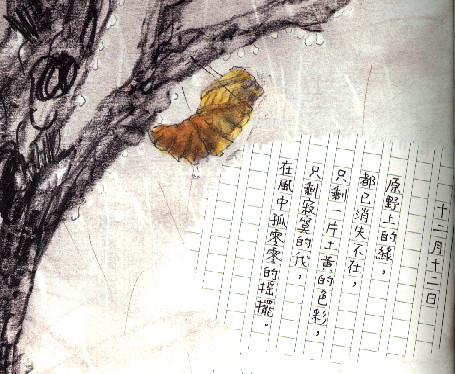 十二月十二日
原野上的綠，
都已消失不在，
只剩一片土黃的色彩，
只剩寂寞的，
在風中孤零零的搖擺。